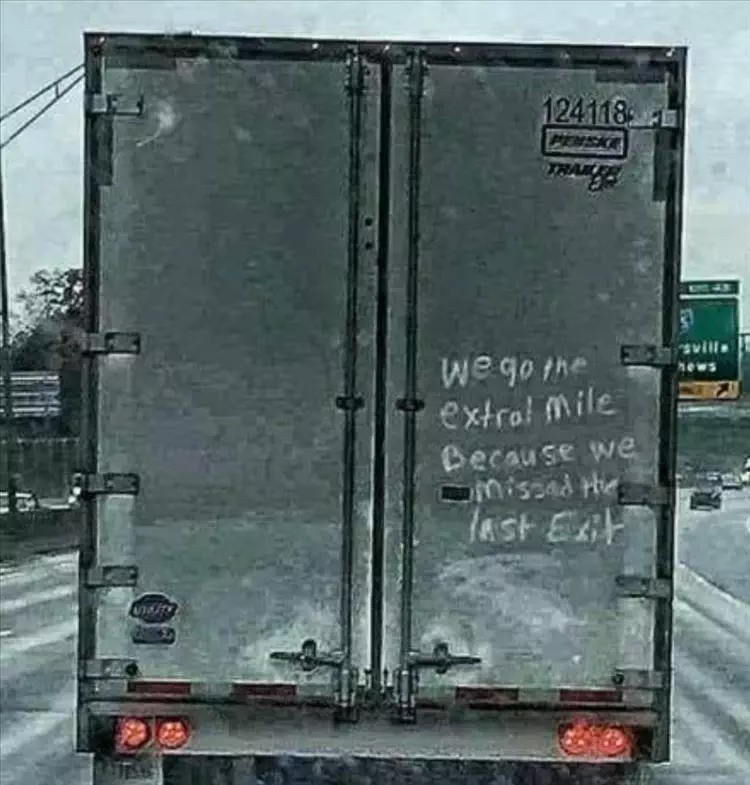 124118
PENSKE
TRAILER
We go the
extra mile
Because we
missed the
last Exit
UTILITY
sville
news